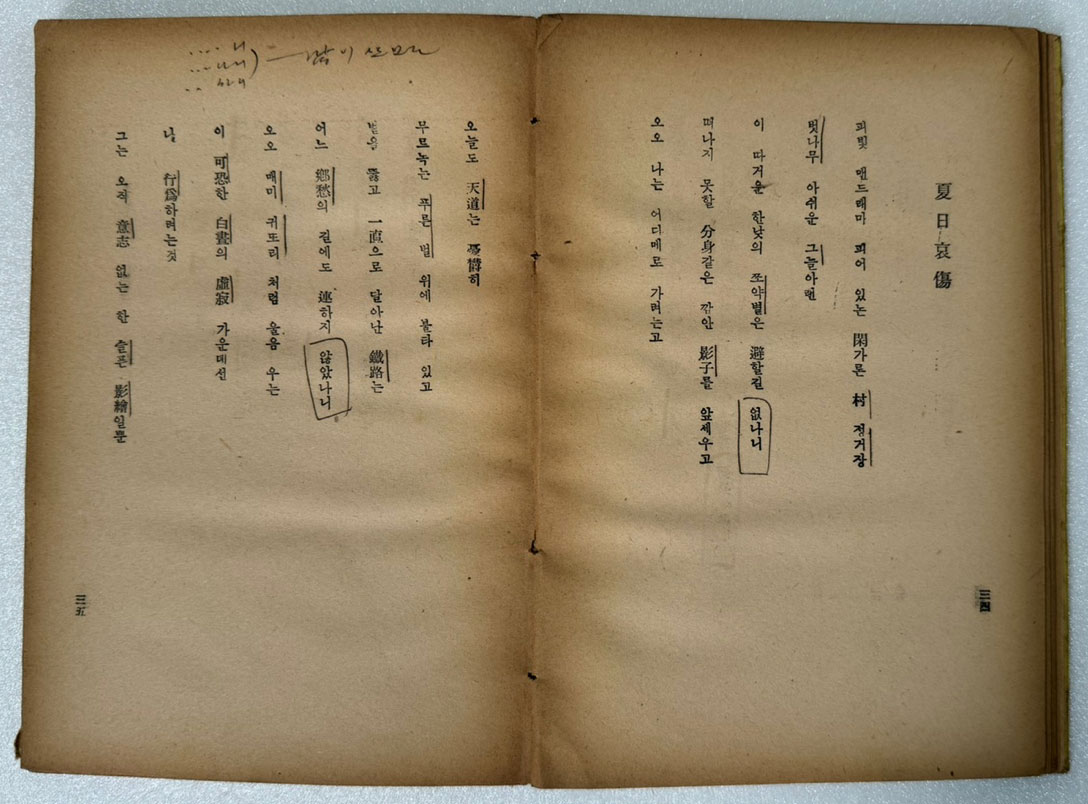 夏日哀傷
피빛 맨드래미 피어 있는 閑가론 村 정거장
벗나무 아쉬운 그늘아랜
이 따거운 한낮의 쪼약볕은 避할길 없나니
떠나지 못할 分身같은 깜안 影子를 앞세우고
오오 나는 어디메로 가려는고
三四
....니
...나니
..하니
많이
오늘도 天道는
무르녹는 푸른 벌 위에 불타 있고
벌을 뚫고 一直으로 달아난 鐵路는
어느 鄕愁의 길에도 連하지 않았나니
오오 매미 귀또리 처럼 울음 우는
이 可恐한 白晝의 虛寂 가운데선
行爲하려는것
그는 오직 意志 없는 한 슬픈 影繪일뿐
三五